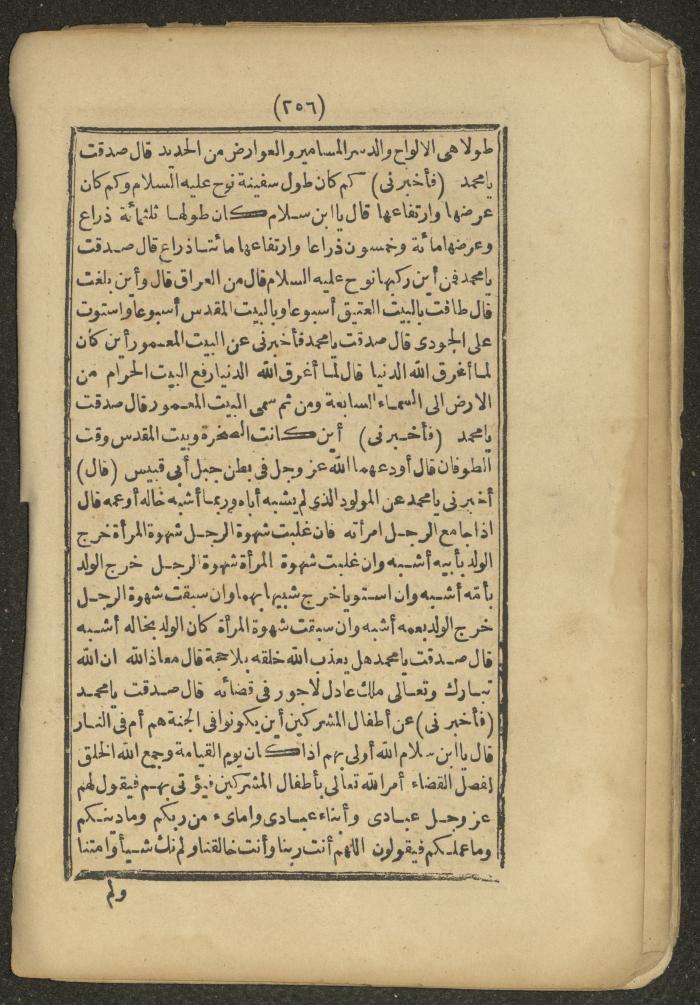 (٢٥٦)
طولا هى الالواح والدسر المسامير والعوارض من الحديد قال صدقت
يا محمد (فأخبرنى) كم كان طول سفينة نوح عليه السلام وكم كان
عرضها وارتفاعها قال يا ابن سلام كان طولها ثلثمائة ذراع
وعرضها مائة وخمسون ذراعا وارتفاعها مائتا ذراع قال صدقت
يا محمد فمن أين ركبها نوح عليه السلام قال من العراق قال وأين بلغت
قال طافت بالبيت العتيق أسبوعا وبالبيت المقدس أسبوعا واستوت
على الجودى قال صدقت يا محمد فأخبرنى عن البيت المعمور أين كان
لما أغرق الله الدنيا قال لما أغرق الله الدنيا رفع البيت الحرام من
الارض الى السماء السابعة ومن ثم سمى البيت المعمور قال صدقت
يا محمد (فأخبرنى) أين كانت الصخرة وبيت المقدس وقت
الطوفان قال أودعهما الله عز وجل فى بطن جبل أبى قبيس (قال)
أخبرنى يا محمد عن المولود الذى لم يشبه أباه وربما أشبه خاله أو عمه قال
اذا جامع الرجل امرأته فان غلبت شهوة الرجل شهوة المرأة خرج
الولد بأبيه أشبه وان غلبت شهوة المرأة شهوة الرجل خرج الولد
بأمه أشبه وان استويا خرج شبيها بهما وان سبقت شهوة الرجل
خرج الولد بعمه أشبه وان سبقت شهوة المرأة كان الولد بخاله أشبه
قال صدقت يا محمد هل يعذب الله خلقه بلا حجة قال معاذ الله ان الله
تبارك وتعالى ملك عادل لا جور فى قضائه قال صدقت يا محمد
(فأخبرنى) عن أطفال المشركين أين يكونوا فى الجنة هم أم فى النار
قال يا ابن سلام الله أولى بهم اذا كان يوم القيامة وجمع الله الخلق
لفصل القضاء أمر الله تعالى بأطفال المشركين فيؤتى بهم فيقول لهم
عز وجل عبادى وأبناء عبادى وامائى من ربكم وما دينكم
وما عملكم فيقولون اللهم أنت ربنا وأنت خالقنا ولم نك شيأ وامتنا
ولم